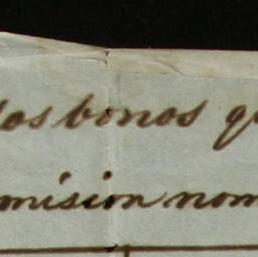 los bonos q
mision nom